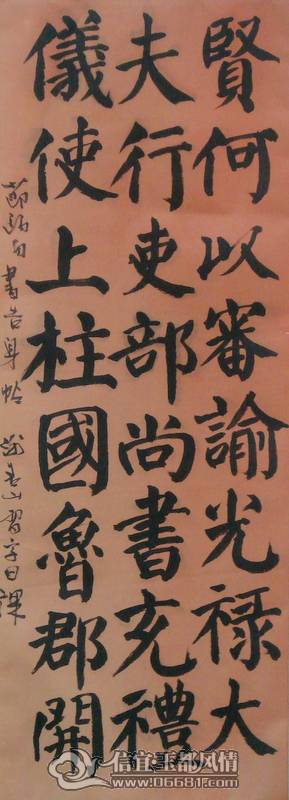 賢何以審諭光禄大
夫行吏部尚書充禮
儀使上柱國魯郡開
節臨自書告身帖 習字日課
信宜玉都风情
www.06681.com